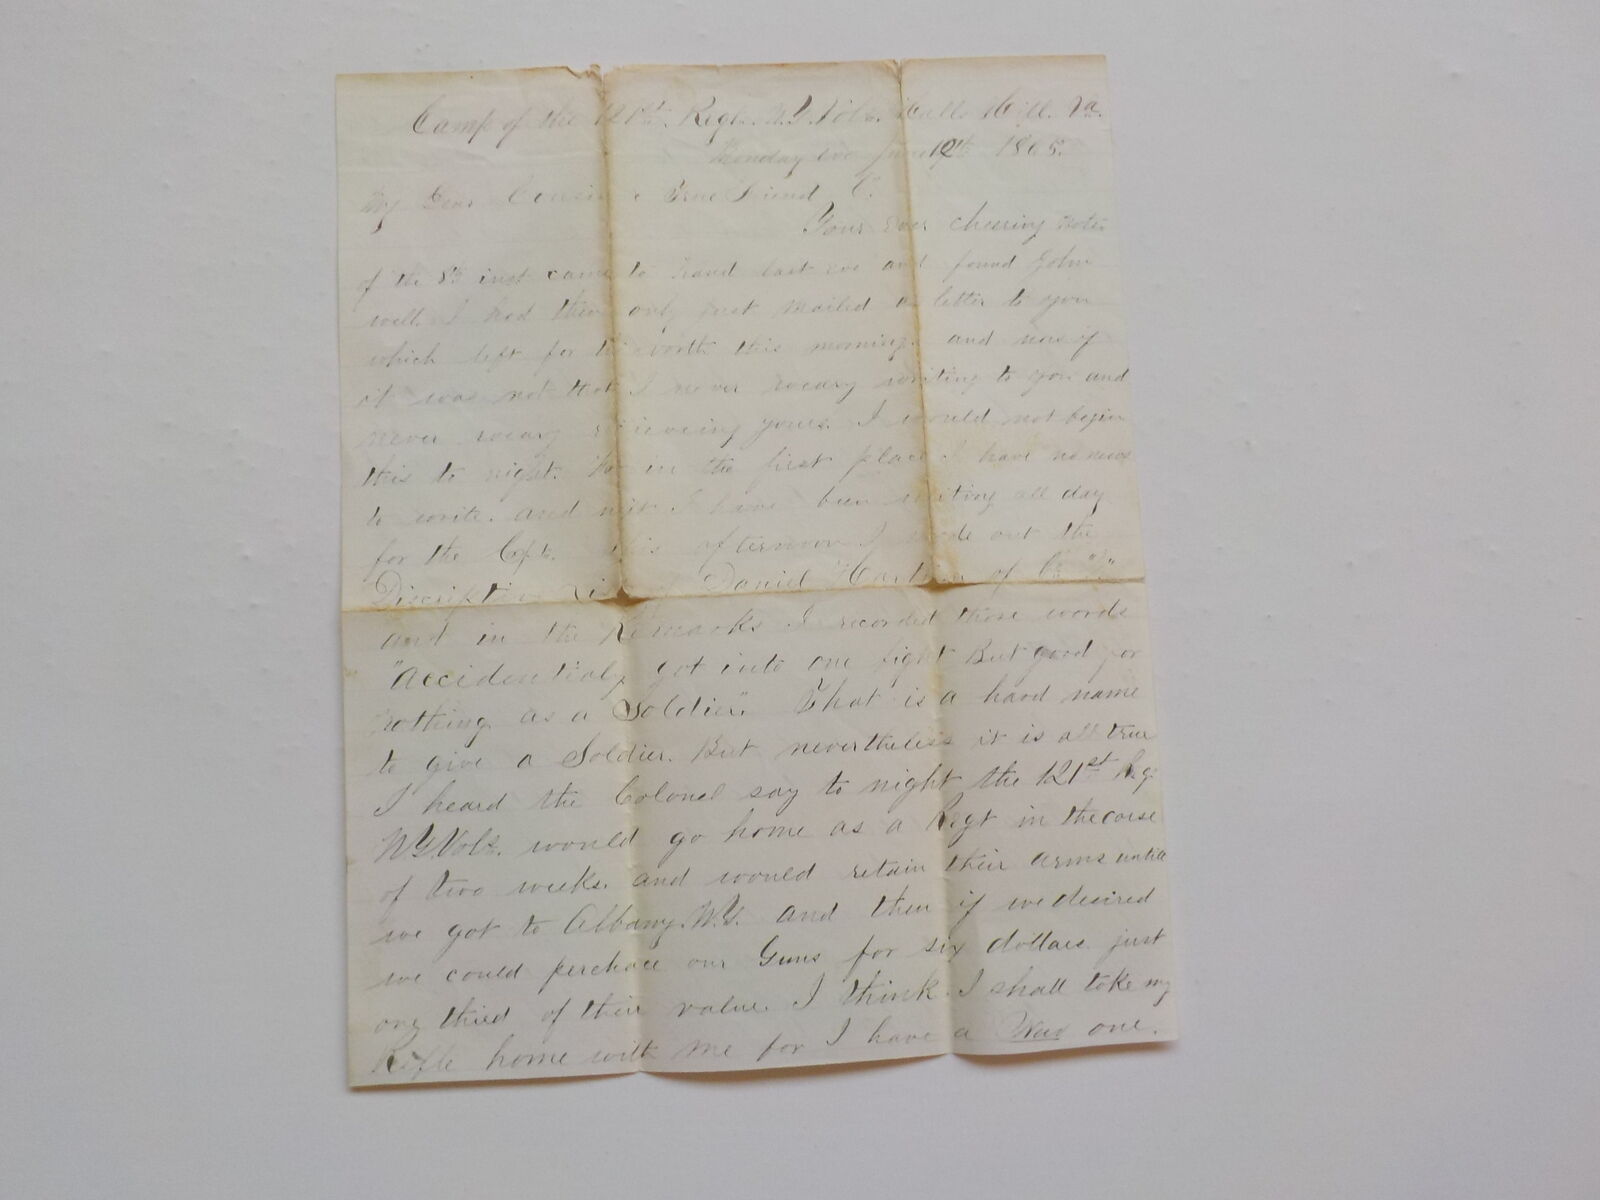 Camp of the 121st Regt. N.Y. Vols. Halls Hill. Va.
Monday eve June 12th 1865.
My Dear Cousin & True Friend, C.
Your ever cheering note
of the 8th inst came to hand last eve and found John
well. I had then only just mailed a letter to you
which left for the north this morning. and now if
it was not that I never weary writing to you and
never weary recieveing yours. I would not begin
this to night. for in the first place I have no news
to write. and next I have been writing all day
for the Capt. this afternoon I made out the
Discriptive List of Daniel of Co
and in the Remarks I recorded these words
"Accidentialy got into one fight But good for
nothing as a Soldier." That is a hard name
to give a Soldier. But nevertheless it is all true
I heard the Colonel say to night the 121st Reg
N.Y. Vols. would go home as a Regt in the corse
of two weeks. and would retain their arms untill
we got to Albany. N.Y. and then if we desired
we could perchace our Guns for six dollars just
one third of their value. I think I shall take my
Rifle home with me for I have a one.